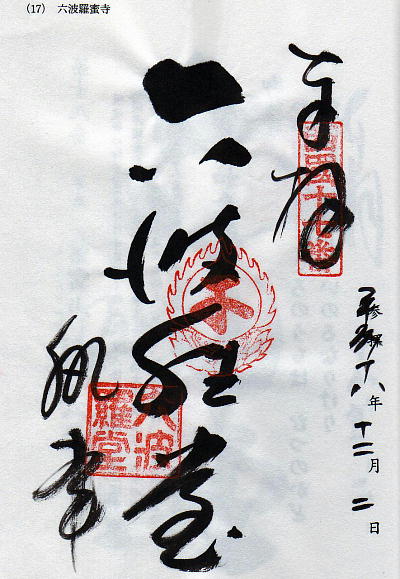 (17) 六波羅蜜寺
奉拝
西国十七番
参拝
平成十八年十二月二日
六波羅堂
六波羅堂
執事